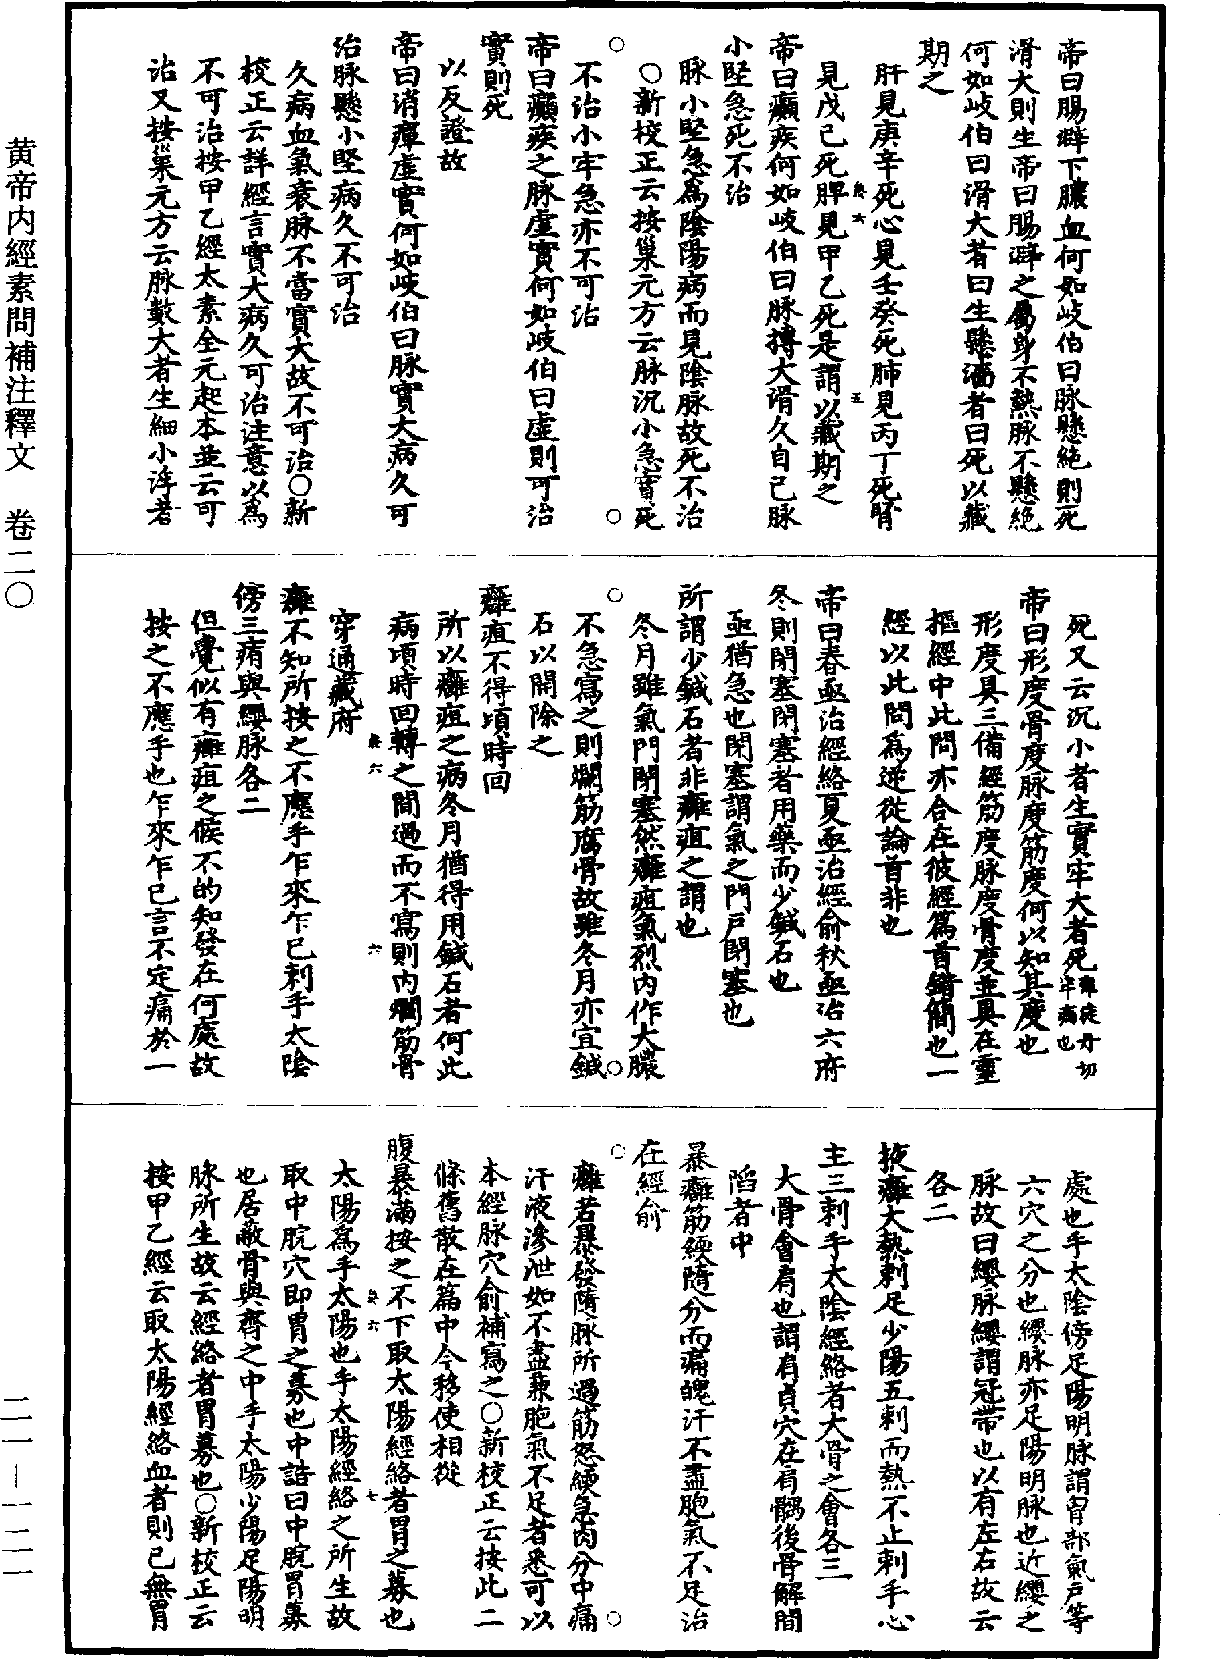 帝曰腸澼下膿血何如岐伯曰脉懸絶則死
滑大則生帝曰腸澼之屬身不熱脉不懸絶
何如岐伯曰滑大者曰生懸濇者曰死以藏
期之
肝見庚辛死心見壬癸死肺見丙丁死腎
見戊己死脾見甲乙死是謂以藏期之
帝曰癲疾何如岐伯曰脉搏大滑久自已脉
小堅急死不治
脉小堅急為陰陽病而見陰脉故死不治
○新校正云按巢元方云脉沉小急實死
不治小牢急亦不可治
帝曰癲疾之脉虛實何如岐伯曰虛則可治
實則死
以反證故
帝曰消癉虛實何如岐伯曰脉實大病久可
治脉懸小堅病久不可治
久病血氣衰脉不當實大故不可治○新
校正云詳經言實大病久可治注意以為
不可治按甲乙經太素全元起本並云可
治又按巢元方云脉數大者生細小浮者
死又云沉小者生實牢大者死
帝曰形度骨度脉度筋度何以知其度也
形度具三備經筋度脉度骨度並具在靈
樞經中此問亦合在彼經篇首錯簡也一
經以此問為逆從論首非也
帝曰春亟治經絡夏亟治經俞秋亟治六府
冬則閉塞閉塞者用藥而少鍼石也
亟猶急也閉塞謂氣之門戶閉塞也
所謂少鍼石者非癰疽之謂也
冬月雖氣門閉塞然癰疽氣烈內作大膿
不急寫之則爛筋腐骨故雖冬月亦宜鍼
石以開除之
癰疽不得頃時回
所以癰疽之病冬月猶得用鍼石者何此
病頃時回轉之間過而不寫則內爛筋骨
穿通藏府
癰不知所按之不應手乍來乍已刺手太陰
傍三痏與纓脉各二
但覺似有癰疽之候不的知發在何處故
按之不應手也乍來乍已言不定痛於一
處也手太陰傍足陽明脉謂胷部氣戶等
六穴之分也纓脉亦足陽明脉也近纓之
脉故曰纓脉纓謂冠帶也以有左右故云
各二
掖癰大熱刺足少陽五刺而熱不止刺手心
主三刺手太陰經絡者大骨之會各三
大骨會肩也謂肩貞穴在肩髃後骨解間
陷者中
暴癰筋緛隨分而痛魄汗不盡胞氣不足治
在經俞
癰若暴發隨脉所過筋怒緛急肉分中痛
汗液滲泄如不盡兼胞氣不足者悉可以
本經脉穴俞補寫之○新校正云按此二
條舊散在篇中今移使相從
腹暴滿按之不下取太陽經絡者胃之募也
太陽為手太陽也手太陽經絡之所生故
取中脘穴即胃之募也中誥曰中脘胃募
也居蔽骨與齊之中手太陽少陽足陽明
脉所生故云經絡者胃募也○新校正云
按甲乙經云取太陽經絡血者則已無胃
黄帝内經素問補注釋文　卷二〇
二一—一二一